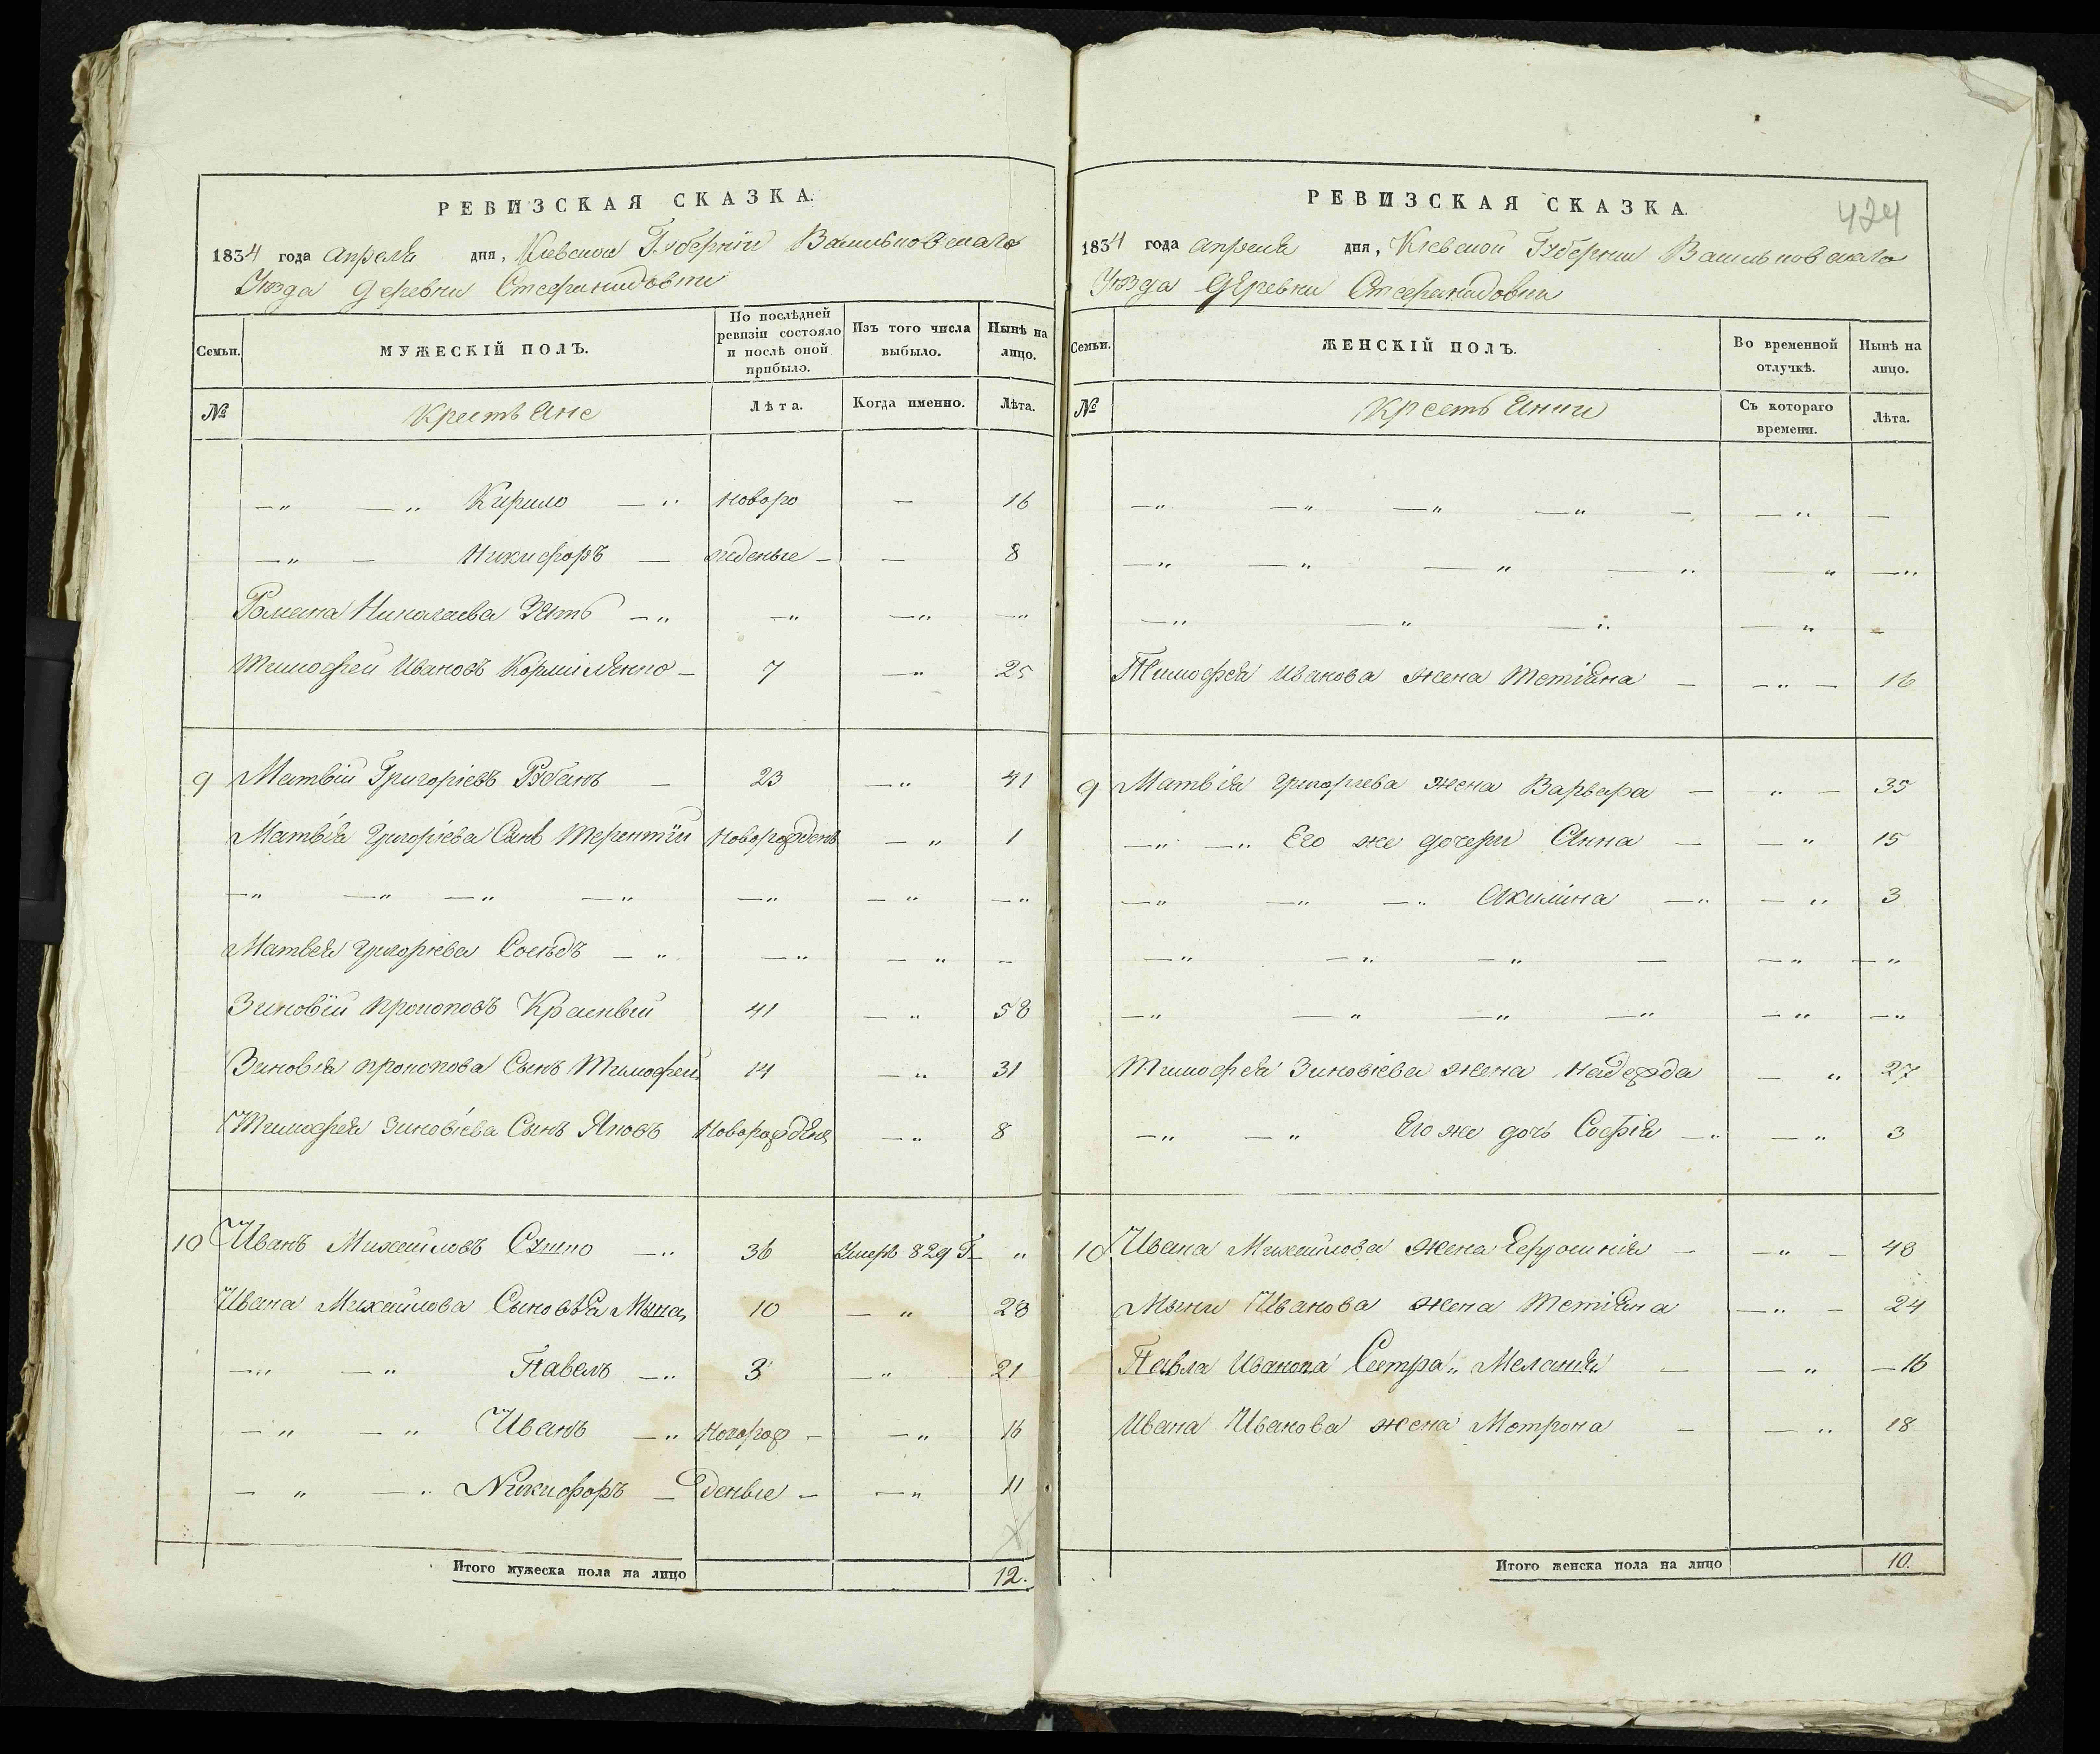 РЕВИЗСКАЯ СКАЗКА.
1834 года апреля дня, Киевской Губерніи Васильковскаго
Уѣзда деревни Стефанидовки
Семьи. МУЖЕСКІЙ ПОЛЪ. По послѣдней ревизіи состояло и послѣ оной прибыло. Изъ того числа выбыло. Нынѣ на лицо.
№ Крестьяне Лѣта. Когда именно. Лѣта.
—„ —„ Кирило —„ новоро — 16
—„ — Никифоръ — жденые — — 8
Романа Николаева Зять —„ —„ —„ —„
Тимофей Ивановъ — 7 —„ 25
9 Матвій Григоріевъ Рубанъ — 23 —„ 41
Матвія Григоріева Сынъ Терентій Новорожденъ —„ 1
—„ —„ —„ —„ —„ —„ —„
Матвея Григоріева Соседъ —„ —„ —„ —
Зиновій Прокоповъ Красный 41 —„ 58
Зиновія Прокопова Сынъ Тимофей 14 —„ 31
Тимофея Зиновіева Сынъ Яковъ Новорожденъ —„ 8
10 Иванъ Михайловъ —„ 36 Умеръ 829 Г— „
Ивана Михайлова Сыновья Мына 10 —„ 28
—„ —„ Павелъ —„ 3 —„ 21
—„ —„ Иванъ —„ Новорож — —„ 16
—„ —„ Никифоръ — деные — —„ 11
Итого мужеска пола на лицо 12.
РЕВИЗСКАЯ СКАЗКА.
424
1834 года апреля дня, Киевской Губерніи Васильковскаго
Уѣзда деревни Стефанидовки
Семьи. ЖЕНСКІЙ ПОЛЪ. Во временной отлучкѣ. Нынѣ на лицо.
№ Крестьянки Съ котораго времени. Лѣта.
—„ —„ —„ —„ — —„ —
—„ —„ —„ —„ —„ —„
—„ —„ —„ —„ —
Тимофея Иванова жена Тетіяна — —„ — 16
9 Матвія Григорьева жена Варвара — „ — 35
—„ —„ Его же дочери Анна — —„ 15
—„ —„ —„ Акилина —„ —„ 3
—„ —„ —„ — —„ —„
—„ —„ —„ —„ —„ —„
Тимофея Зиновіева жена Надежда —„ 27
—„ —„ Его же дочь Софія —„ —„ 3
10 Ивана Михайлова жена Ефросинія — —„ — 48
Мыни Иванова жена Тетіяна —„ — 24
Павла Иванова Сестра „ Меланія — —„ — 16
Ивана Иванова жена Мотрона — —„ 18
Итого женска пола на лицо 10.